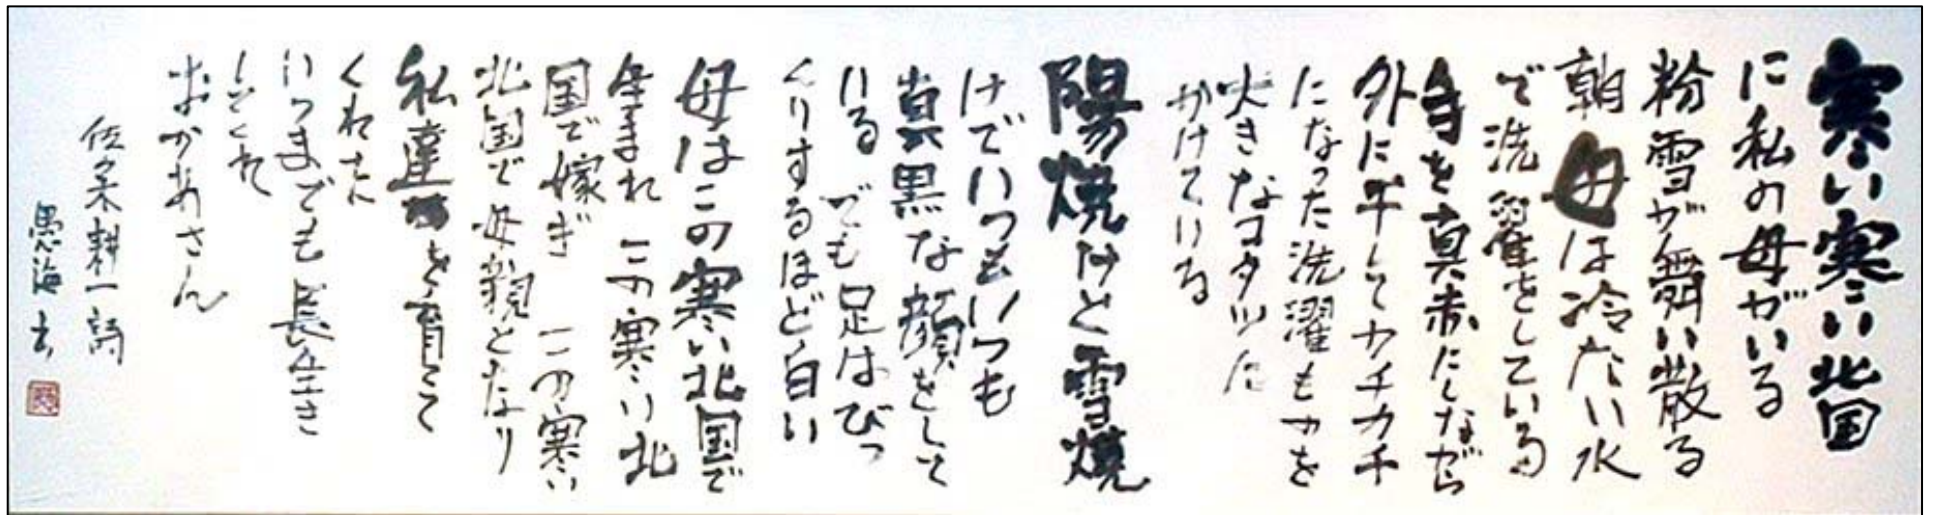 寒い寒い北国
に私の母がいる
粉雪が舞い散る
朝 母は冷たい水
で洗濯をしている
手を真赤にしながら
外に干してカチカチ
になった洗濯ものを
大きなコタツに
かけている
陽焼けと雪焼
けでいつもいつも
真黒な顔をして
いる でも足はびっ
くりするほど白い
母はこの寒い北国で
生まれ この寒い北
国で嫁ぎ この寒い
北国で母親となり
私達を育てて
くれた
いつまでも長生き
してくれ
おかあさん
佐々木耕一詩
愚海書